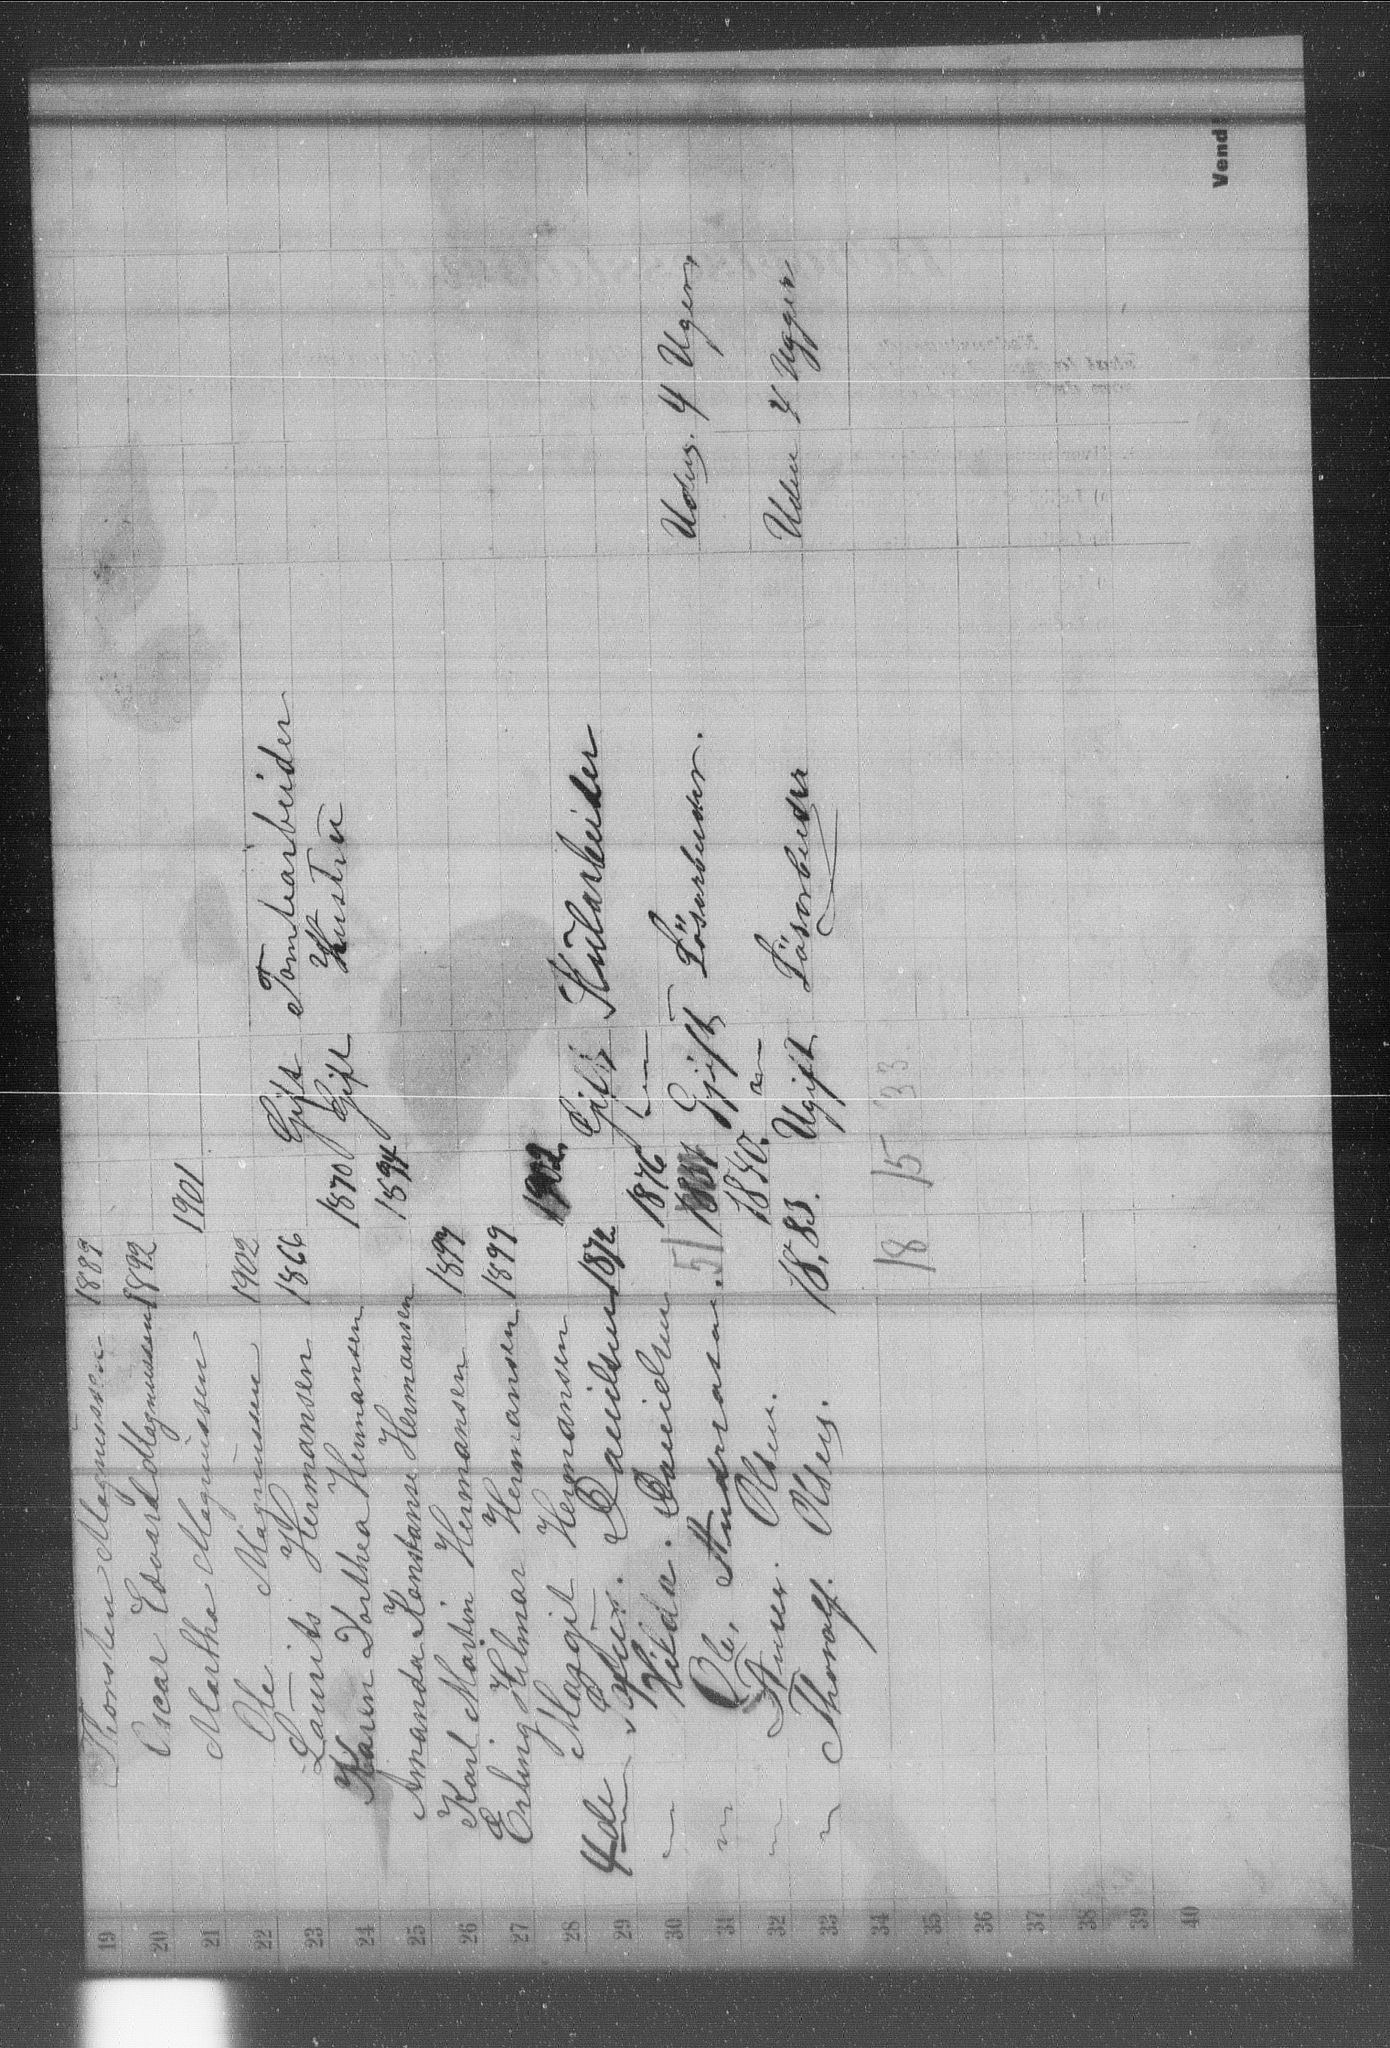 19 Thorsten Magnussen 1889
20 Oscar Edvard Magnussen 1892
21 Martha Magnussen 1901
22 Ole Magnussen 1902
23 Laurits Hermansen 1866 Gift Tomtearbeider
24 Karen Dorthea Hermansen 1870 Gift Hustru
25 Amanda Konstanse Hermansen 1894
26 Karl Martin Hermansen 1897
27 Erling Hilmar Hermansen 1899
28 Magit Hermansen 1902
29 4de Danielsen 1872 Gift Kularbeider
30 Hilda. Danielsen 1876
31 Ole, Andreasen 51 Gift Løsarbeider. 4 Uger
32 Olsen. 1850.
33 Thoralf. Olsen. 1883. Ugift Løsarbeider Uden 4 Ugger
34
35 18 15 33
36
37
38
39
40
Vend!